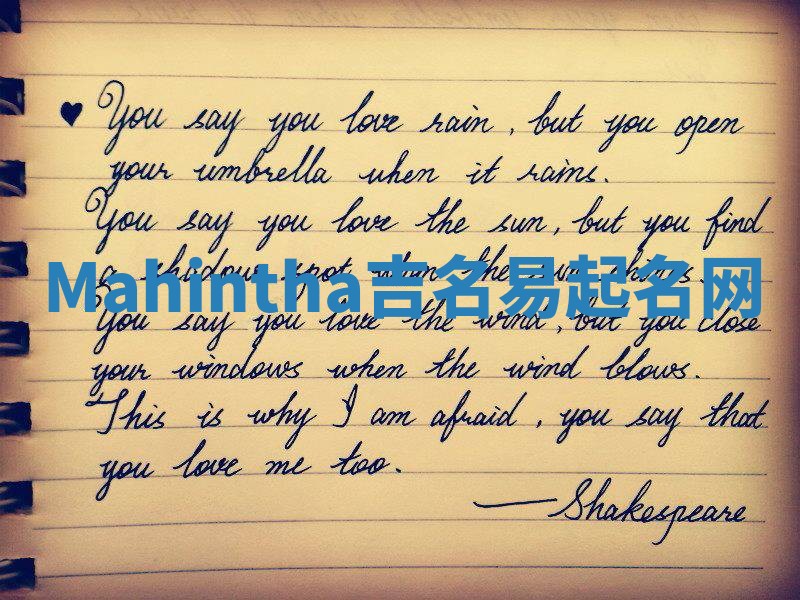 ♥ You say you love rain, but you open
your umbrella when it rains.
You say you love the sun, but you find
a shadow spot when the sun shines.
Mahintha吉名易起名网
You say you love the wind, but you close
your windows when the wind blows.
This is why I am afraid, you say that
you love me too.
—Shakespeare